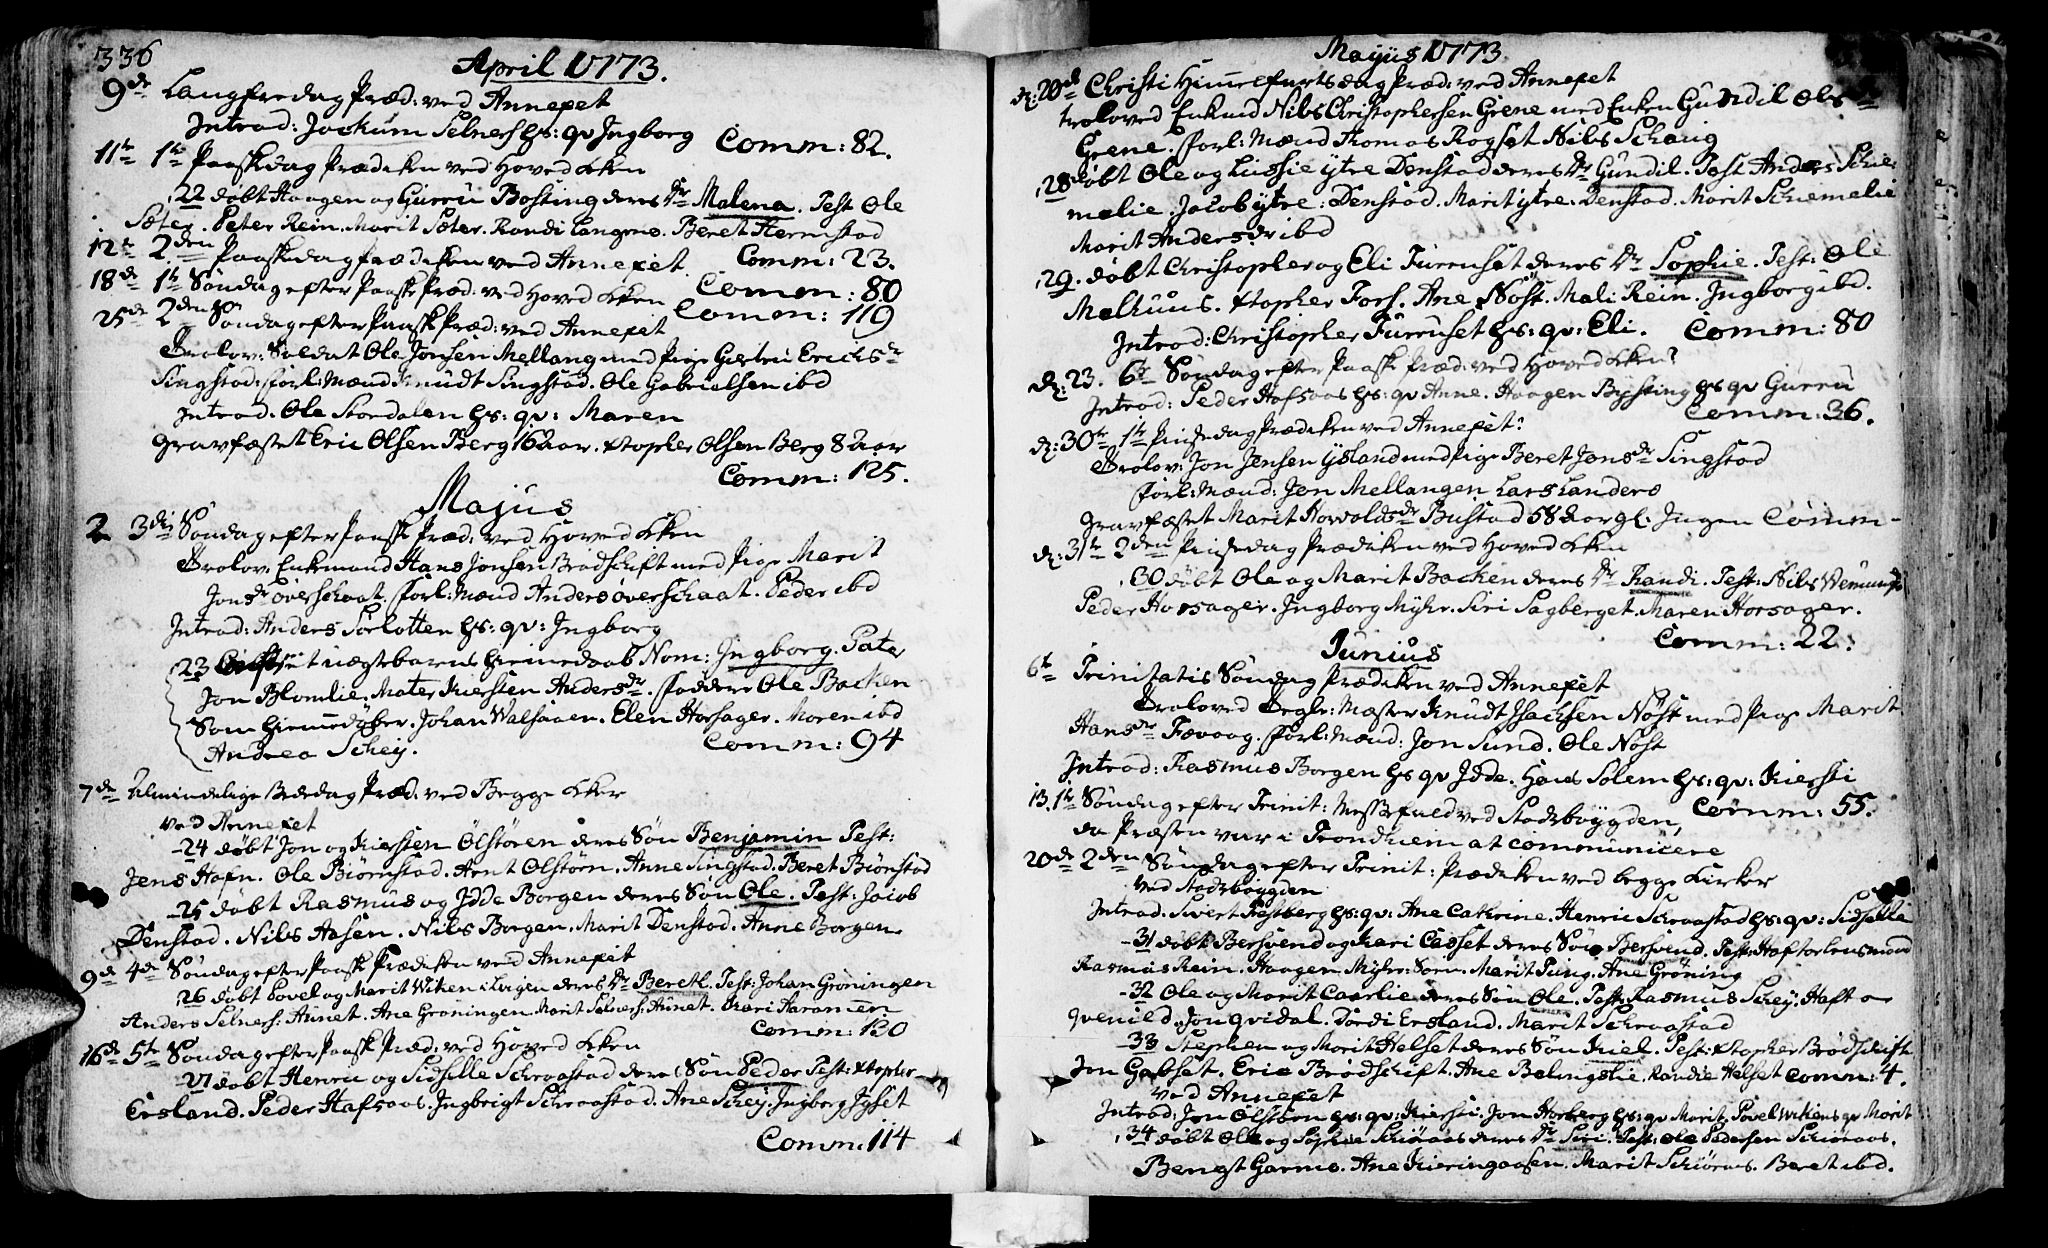 336
April 1773.
9de Langfredag Præd: ved Annexet
Introd: Jockum Selnes hs: qv Ingborg Comm: 82.
11te 1te Paaskdag Prædiken ved Hoved Kken
,22 døbt Haagen og Gurru Bosting deres Dr Malena. Test Ole
Sæter. Peter Rein. Marit Sæter. Randi Langmo. Beret Hernstad
12te 2den Paaskedag prædiken ved Annexet Comm: 23.
18de 1te Søndag efter Paaske Præd: ved Hoved Kken Comm: 80
25de 2den Søndag efter Paask Præd: ved Annexet Comm: 119
Trolov: Soldat Ole Jonsen Mellang med Pige Giertru Erichsdr
Singstad: forl: Mænd Knudt Singstad. Ole Gabrielsen ibd
Introd. Ole Stordalen hs: qv: Maren
Gravfæstet Eric Olsen Berg 16 aar. Xtopher Olsen Berg 8 aar
Comm: 125.
Majus
2 3die Søndag efter Paask Præd: ved Hoved Kken
Trolov: Enkemand Hans Jonsen Brødschift med Pige Marit
Jonsdr Øverschaat. forl: Mænd Anders Øverschaat. Peder ibd
Introd: Anders Sørlotten hs: qv: Ingborg
,23 et uægtebarns hiemedaab Nom: Ingborg. Pater
Jon Blomlie. Mater Kiersten Andersdr. Faddere Ole Backen
Som hiemedøber. Johan Walsaaen. Elen Horsager. Maren ibd
Andrea Schey. Comm: 94
7de Almindelige Bededag Præd: ved Begge Kker
ved Annexet
-24 døbt Jon og Kiersten Olstøren deres Søn Benjamin Test:
Jens Hafn. Ole Biørnstad. Arnt Olstørn. Anne Singstad. Beret Biørnstad
-25 døbt Rasmus og Idde Borgen deres Søn Ole. Test: Jacob
Denstad. Nils Aasen. Nils Borgen. Marit Denstad. Anne Borgen
9de 4de Søndag efter Paask Prædiken ved Annexet
,26 døbt Povel og Marit Wiken i Lvigen deres Dr Beretl. Test: Johan Grøningen
Anders Selnes: Aunet. Ane Grøningen. Marit Selnes: Aunet. Kari Haramoen
Comm: 130
16de 5te Søndag efter Paask Præd: ved Hoved Kken
-27 døbt Henric og Sidselle Schraastad deres Søn Peder Test: Xtopher
Ersland. Peder Hafsaas. Ingbrigt Schraastad. Ane Schey. Ingborg Jyset
Comm: 114
Majus 1773
d: 20de Christi Himmelfarts dag Præd: ved Annexet
troloved Enkmd Nils Christophersen Grene med Enken Gundil Olsdr
Grene. forl: Mænd Thomas Rogset Nils Schaug
,28 døbt Ole og Lussie ytre Denstad deres Dr Gundil. Test Anders Schie
melie. Jacob ytre: Denstad. Marit ytre. Denstad. Marit Schiemelie
Marit Andersdr ibd
,29. døbt Christopher og Eli Furruset deres Dr Sophie. Test: Ole
Melhuus. Xtopher Fors. Ane Nøst. Mali Rein. Ingborg ibd.
Introd: Christopher Furruset hs: qv: Eli. Comm: 80
d: 23. 6te Søndag efter Paask Præd: ved Hoved Kken
Introd: Peder Hafsaas hs: qv Anne. Haagen Bysting hs qv Gurru
Comm: 36.
d: 30te 1te Pintsedag Prædiken ved Annexet:
Trolov: Jon Jensen Ysland med Pige Beret Jonsdr Singstad
forl: Mænd: Jon Mellangen Lars Landerø
Gravfæstet Marit Howoldsdr Bustad 58 aar gl: Ingen Comm-
d: 31te 2den Pintsedag Prædiken ved Hoved Kken
,30 døbt Ole og Marit Backen deres Dr Randi. Test: Nils
Peder Horsager. Ingborg Myhr. Siri Sagberget. Maren Horsager.
Comm: 22.
Junius
6te Trinitatis Søndag Prædiken ved Annexet
Troloved Tegle: Mæster Knudt Isachsen Nøst med Pige Marit
Hansdr Fævaag. forl: Mænd: Jon Sund. Ole Nøst
Introd: Rasmus Borgen hs qv Idde. Hans Solem hs: qv: Kiersti
13. 1te Søndag efter Trinit: Messefald ved Stadsboygden, Comm: 55.
da Præsten var i Trondhiem at communicere
20de 2den Søndag efter Trinit: Prædiken ved begge Kirker
ved Stadsboygden
Introd: Siwert Festberg hs: qv: Ane Cathrine. Henric Schraastad hs: qv: Sidselle
-31 døbt Bersvend og Kari Casset deres Søn Bersvend. Test: Haftor Lensmand
Rasmus Rein. Haagen Myhr: Søren. Marit Pung. Ane Grøning
-32 Ole og Marit Caarlie deres Søn Ole. Test: Rasmus Schey. Haftor
Qvenild. Jon Qvidal. Dordi Ersland. Marit Schraastad
-33 Stephen og Marit Helset deres Søn Kiel. Test: Xtopher Brødschift
Jon Gabset. Eric Brødschift. Ane Belingslie. Randie Helset Comm: 4.
ved Annexet
Introd: Jon Olstøren hs: qv: Kiersti. Jon Horberg hs: qv Marit. Povel Wikens qv Marit
,34 døbt Ole og Sophie Schiøraas deres Dr Siri. Test: Ole Pedersen Schiøraas.
Bengt Garmo. Ane Kieringaasen. Marit Schiøraas. Beret ibd.